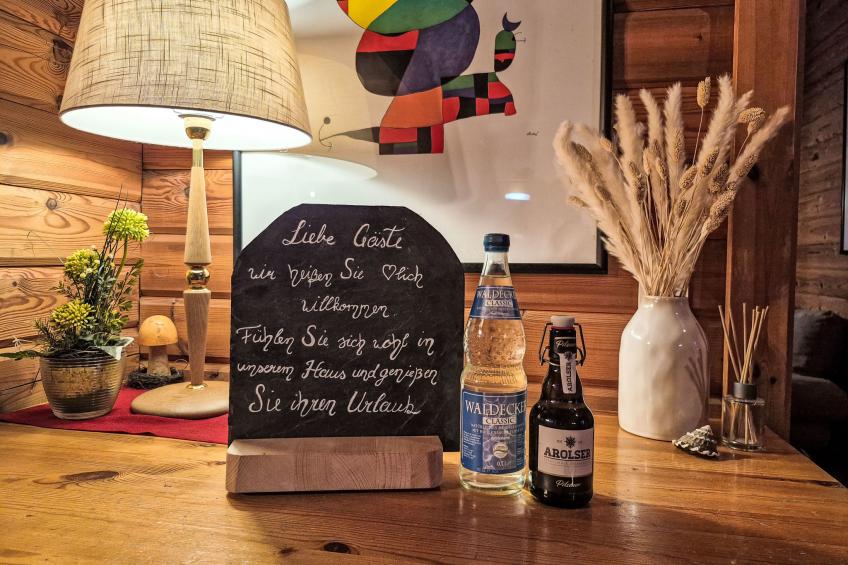 Liebe Gäste
wir heißen Sie ♡lich
willkommen.
Fühlen Sie sich wohl in
unserem Haus und genießen
Sie ihren Urlaub
WALDECKER
CLASSIC
WALDECKER
CLASSIC
Pilsener
AROLSER
AROLSER
Pilsener